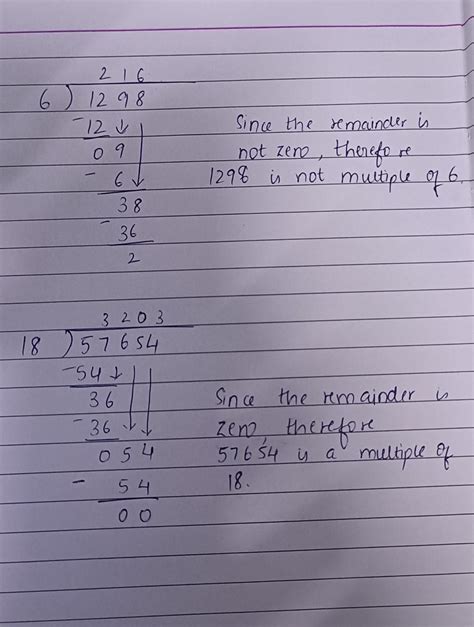 2 1 6
6 ) 1298
-12 ↓
0 9
- 6 ↓
38
- 36
2
Since the remainder is
not zero, therefore
1298 is not multiple of 6.
3 2 0 3
18 ) 57654
-54 ↓
36
- 36 ↓ ↓
0 5 4
- 5 4
0 0
Since the remainder is
zero, therefore
57654 is a multiple of
18.